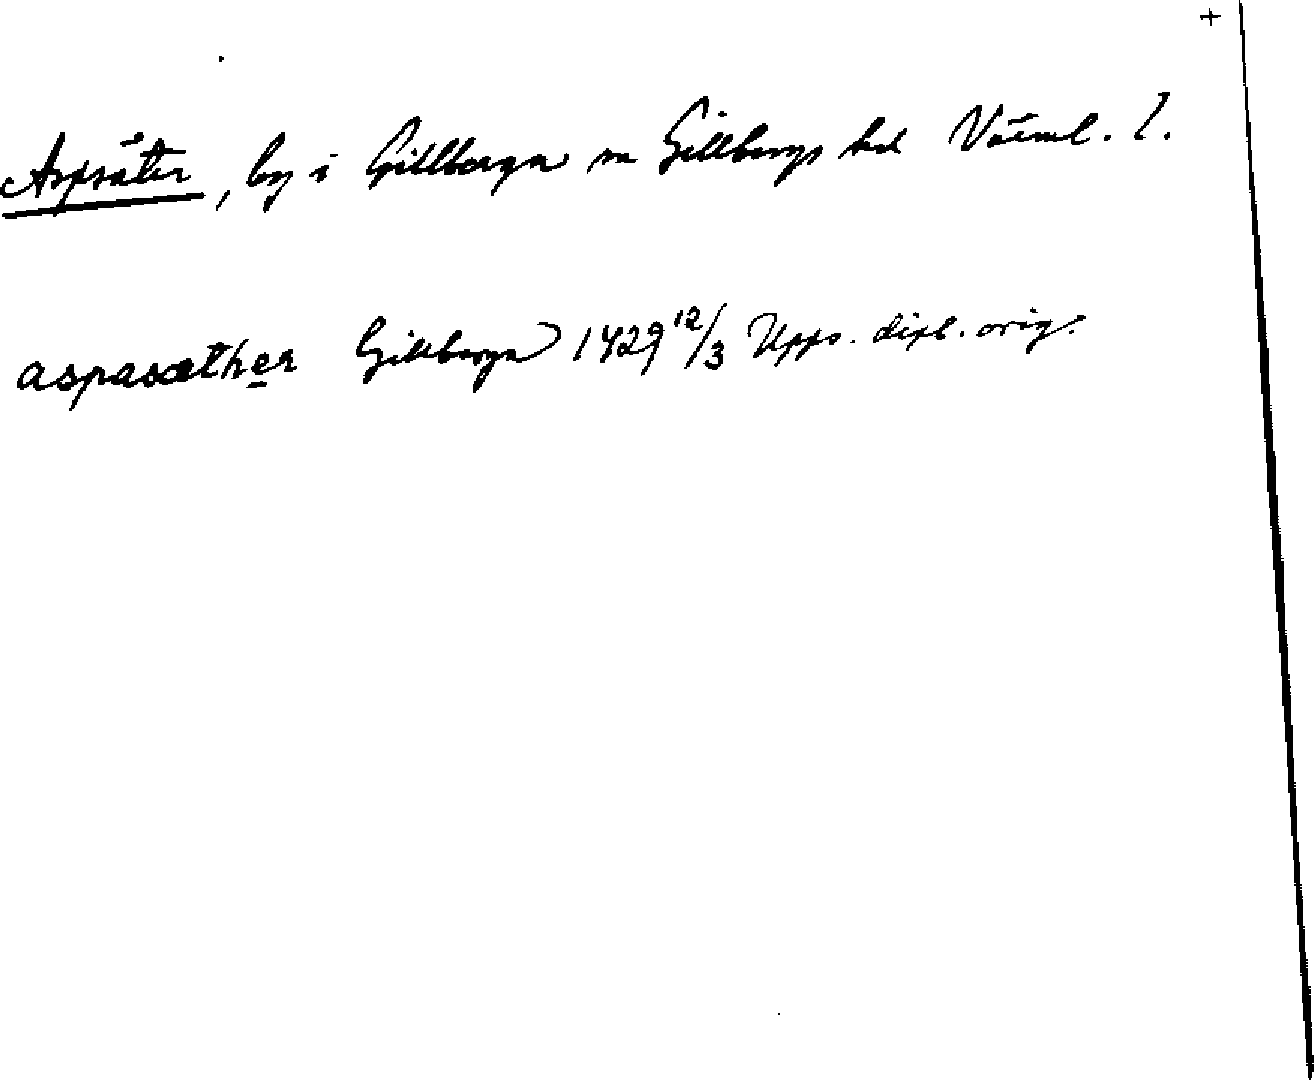 +
Aspsäter, by i Gillberga sn Gillbergs hd Värml. l.
aspasæther Gillberga 1429 12/3 Upps. dipl. orig.